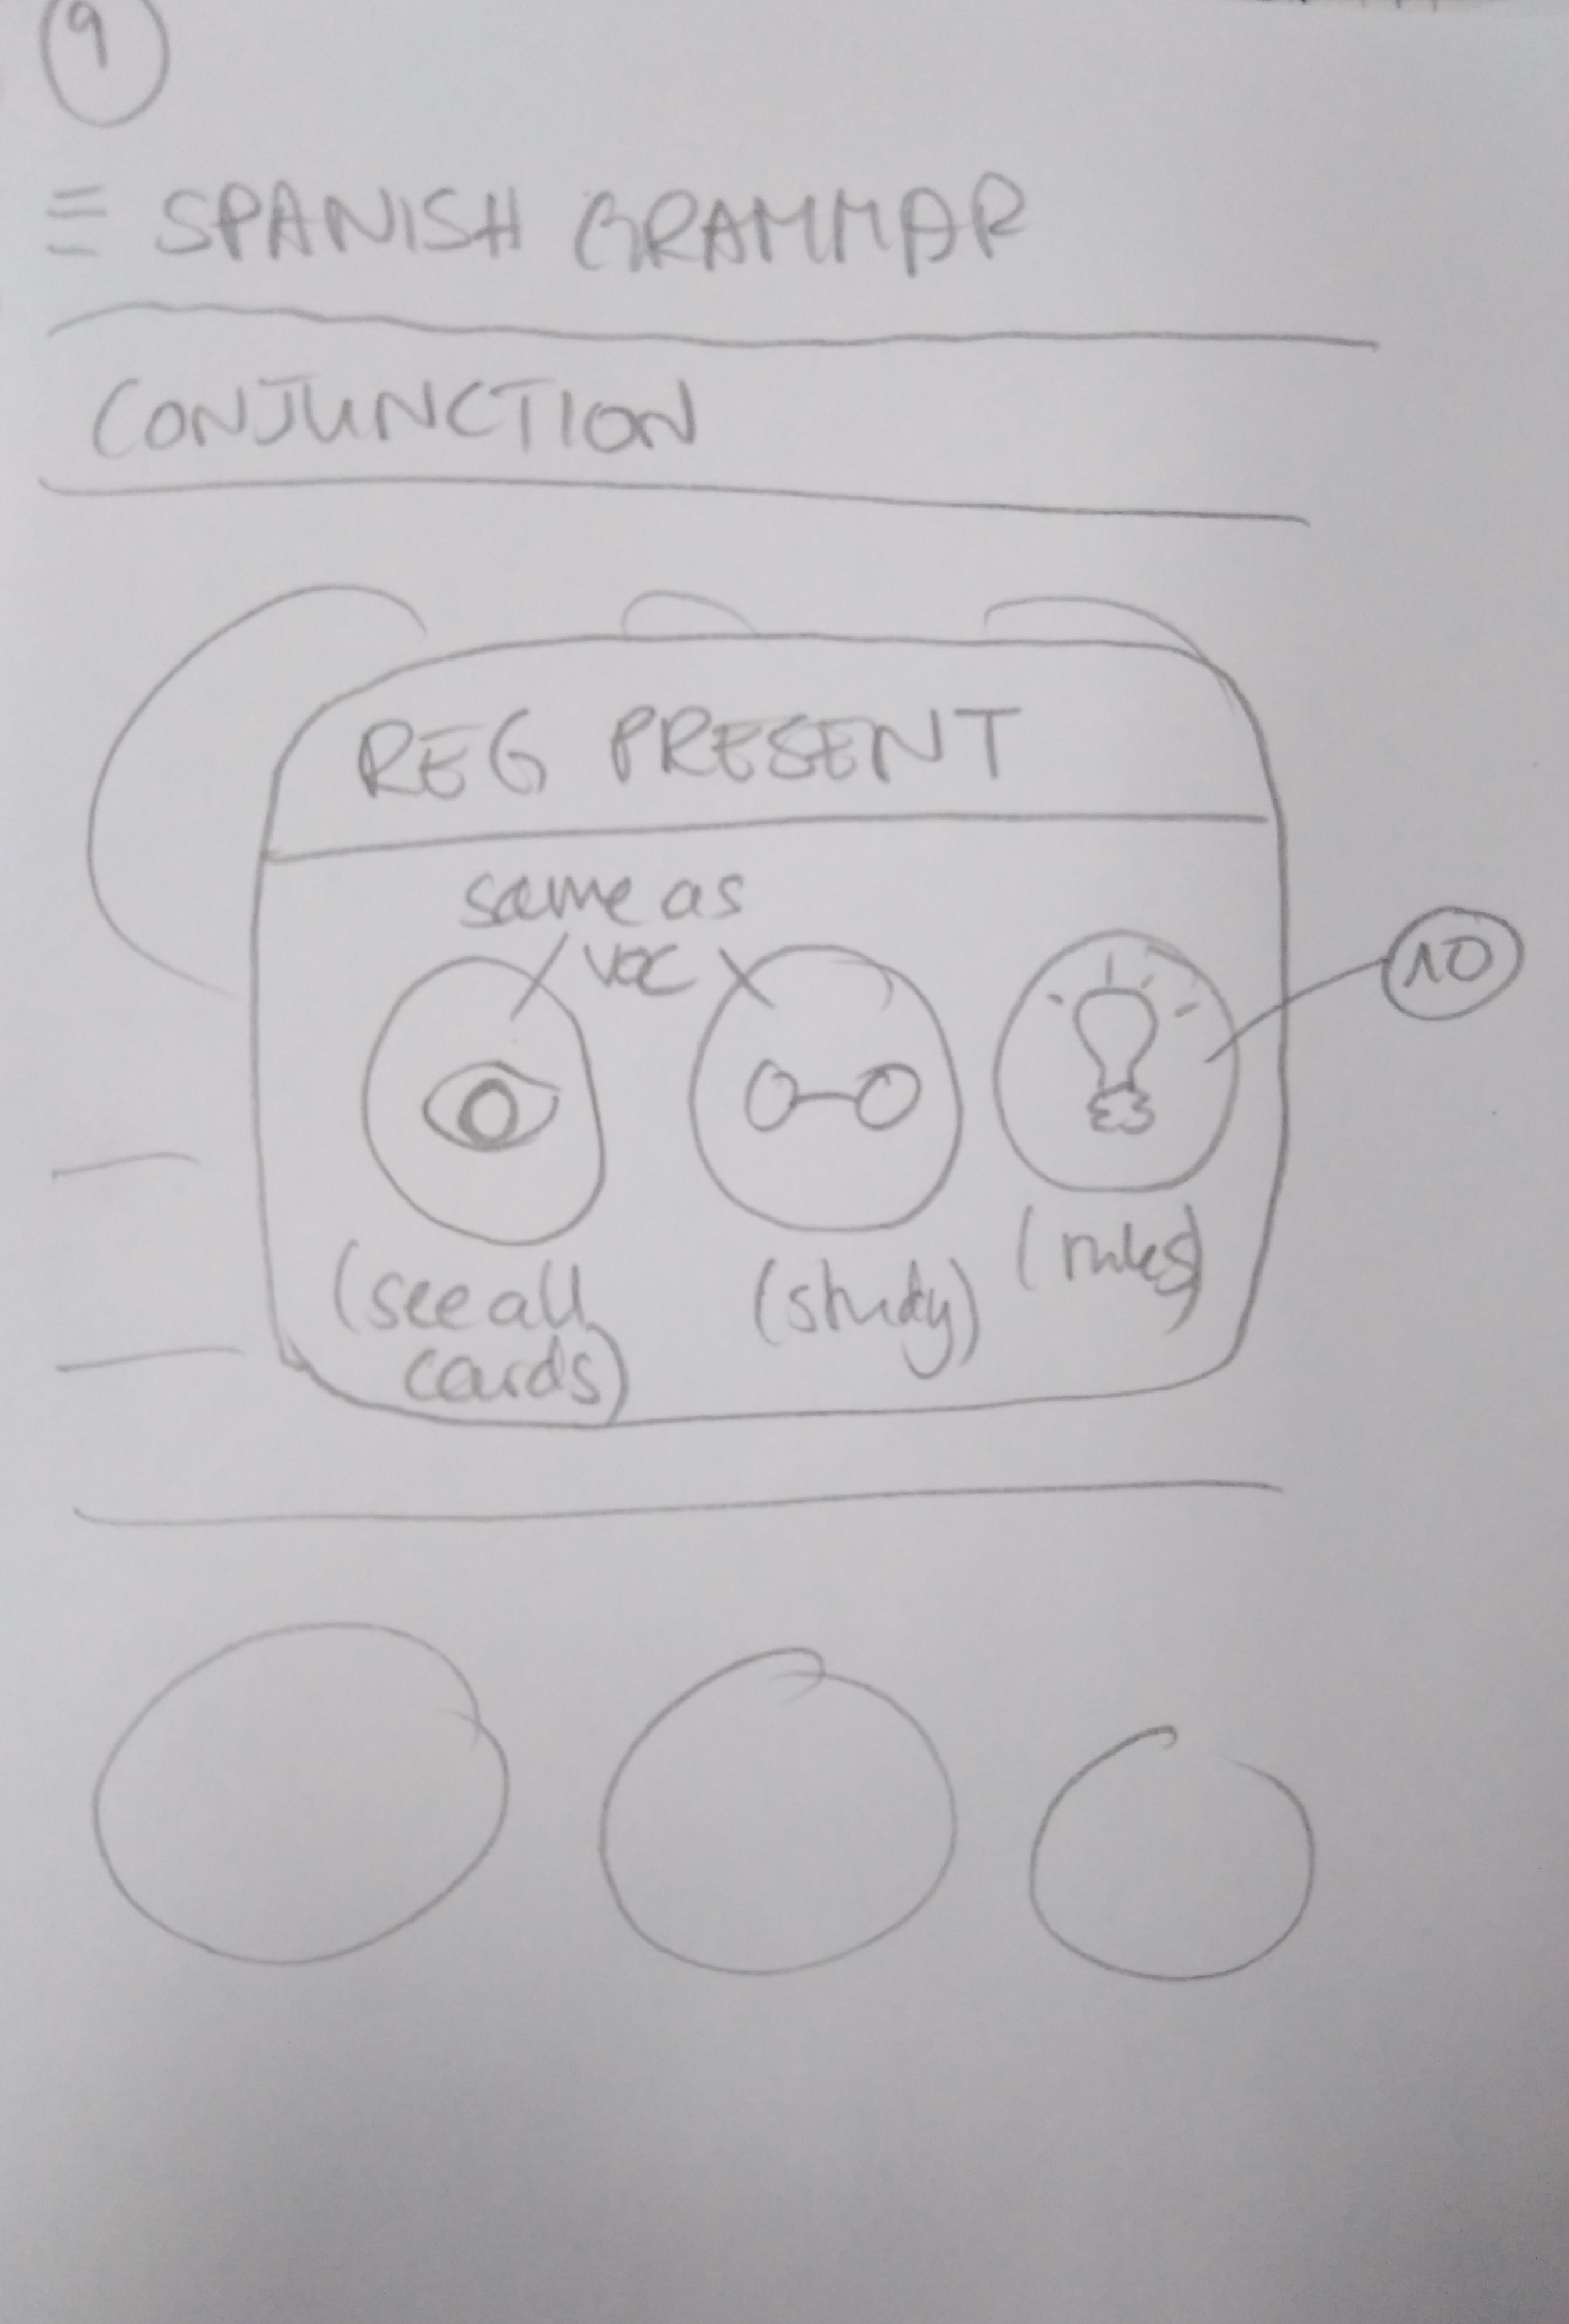 9
SPANISH GRAMMAR
CONJUNCTION
REG PRESENT
same as
VOC
10
(see all
cards)
(study)
(rules)